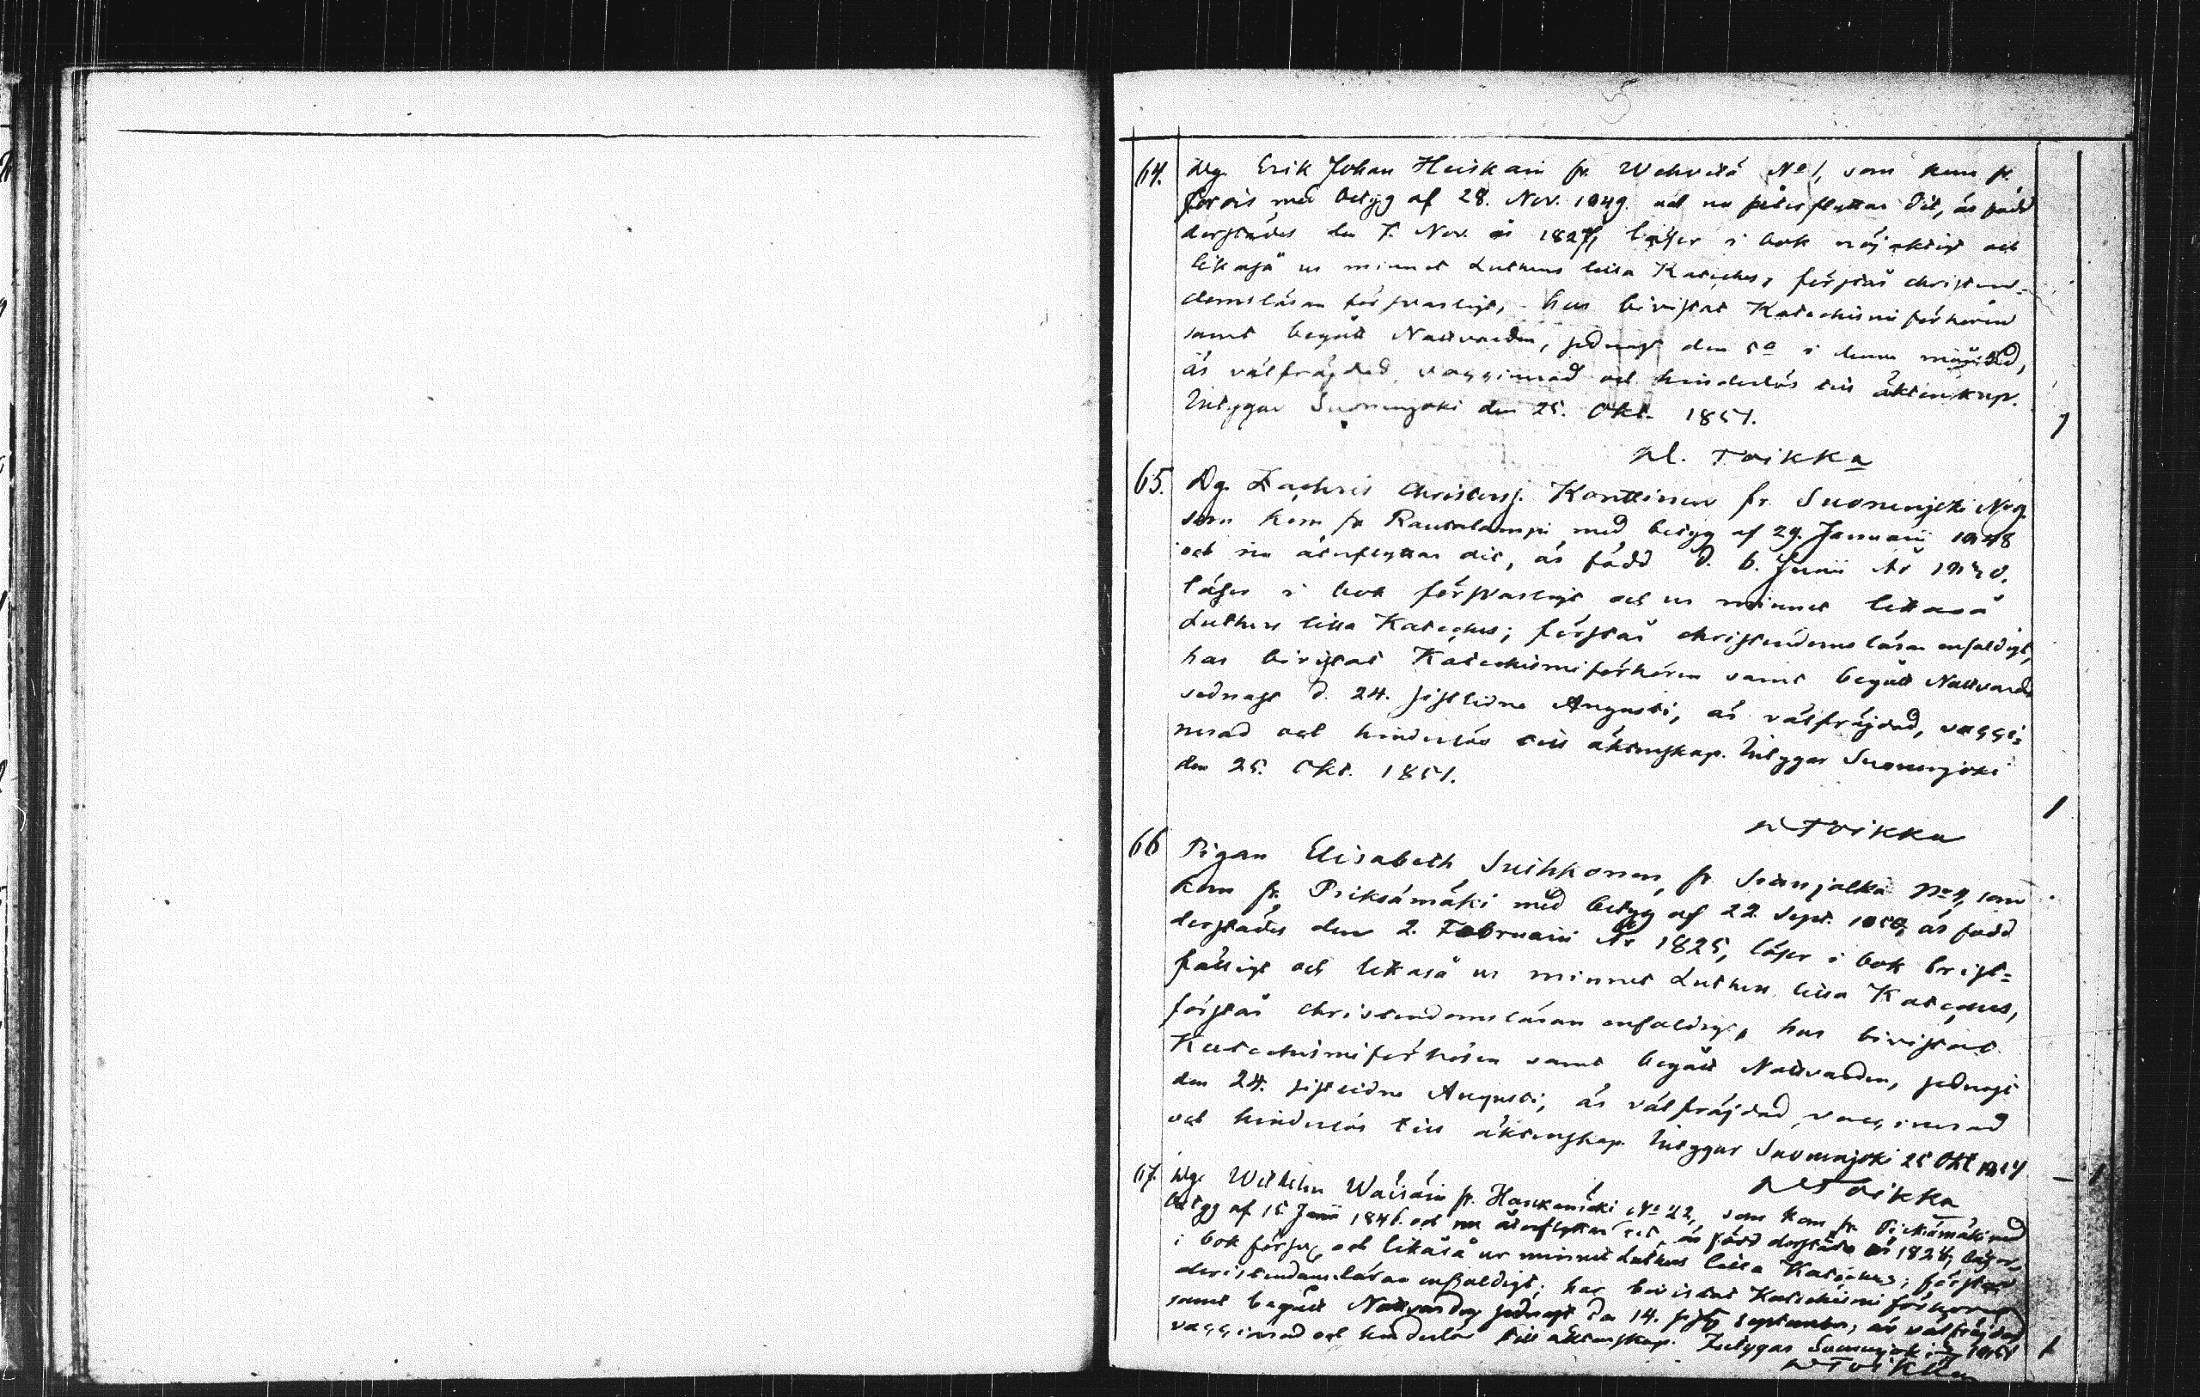 64. Dg. Erik Johan Heiskain fr. Wehvilä No 1, som kom fr.
Jorois med betyg af 28. Nov. 1849. och nu återflyttar dit, är född
derstädes den 7. Nov. år 1827, läser i bok nöjaktigt och
likaså ur minnet Luthers lilla Kateches, förstår christen-
domsläran försvarligt, har bivistat Katechismi förhören
samt begått Nattvarden, sednast den 5 i denna månad,
är välfräjdad, vaccinerad och hinderlös till äktenskap.
Intygar Suonenjoki den 25. Okt. 1851. 1
Toikka
65. Dg. Zachris Christersj. Konttinen fr. Suonenjoki No 9
som kom fr Rautalampi med betyg af 29. Januarii 1848
och nu återflyttar dit, är född d. 6. Junii År
läser i bok försvarligt och ur minnet likaså
Luthers lilla Kateches; förstår christendomsläran enfaldigt,
har bivistat Katechismiförhören samt begått Nattvarden
sednast d. 24. sistlidne Augusti, är välfräjdad, vacci=
nerad och hinderlös till äktenskap. Intygar Suonenjoki
den 25. Okt. 1851. 1
Toikka
66 Pigan Elisabeth Suihkonen, fr. No 4, som
kom fr. Pieksämäki med betyg af 22. Sept. 1850, är född
derstädes den 2. Februarii År 1825, läser i bok brist=
fälligt och likaså ur minnet Luthers lilla Kateches,
förstår christendomsläran enfaldigt, har bivistat
Katechismiförhören samt begått Nattvarden, sednast
den 24. sistlidne Augusti, är välfräjdad, vaccinerad
och hinderlös till äktenskap. Intygar Suonenjoki 25 Okt 1851
Toikka — 1
67. Dg. Wilhelm Wäisäin fr. Haukamäki No 22, som kom fr. Pieksämäki med
betyg af 15 Junii 1846. och nu återflyttar dit, är född derstädes år 1824, läser
i bok försv. och likaså ur minnet Luthers lilla Kateches; förstår
christendomsläran enfaldigt; har bivistat Katechismi förhören
samt begått Nattvarden sednast den 14. sistl September, är välfräjdad
vaccinerad och hinderlös till äktenskap. Intygar Suonenjoki 1851 1
Toikka